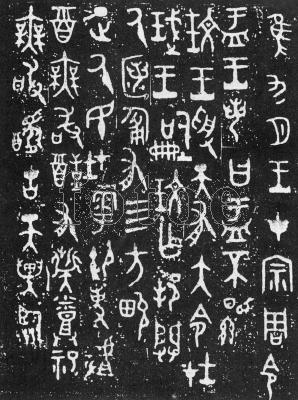 隹九月王才宗周令
盂王若曰盂不顯
玟王受天有大令在
珷王嗣玟乍邦闢
厥匿匍有四方畯
正厥民在雩御事𠭯
酉無敢酖有祡烝祀
無敢醻古天異臨